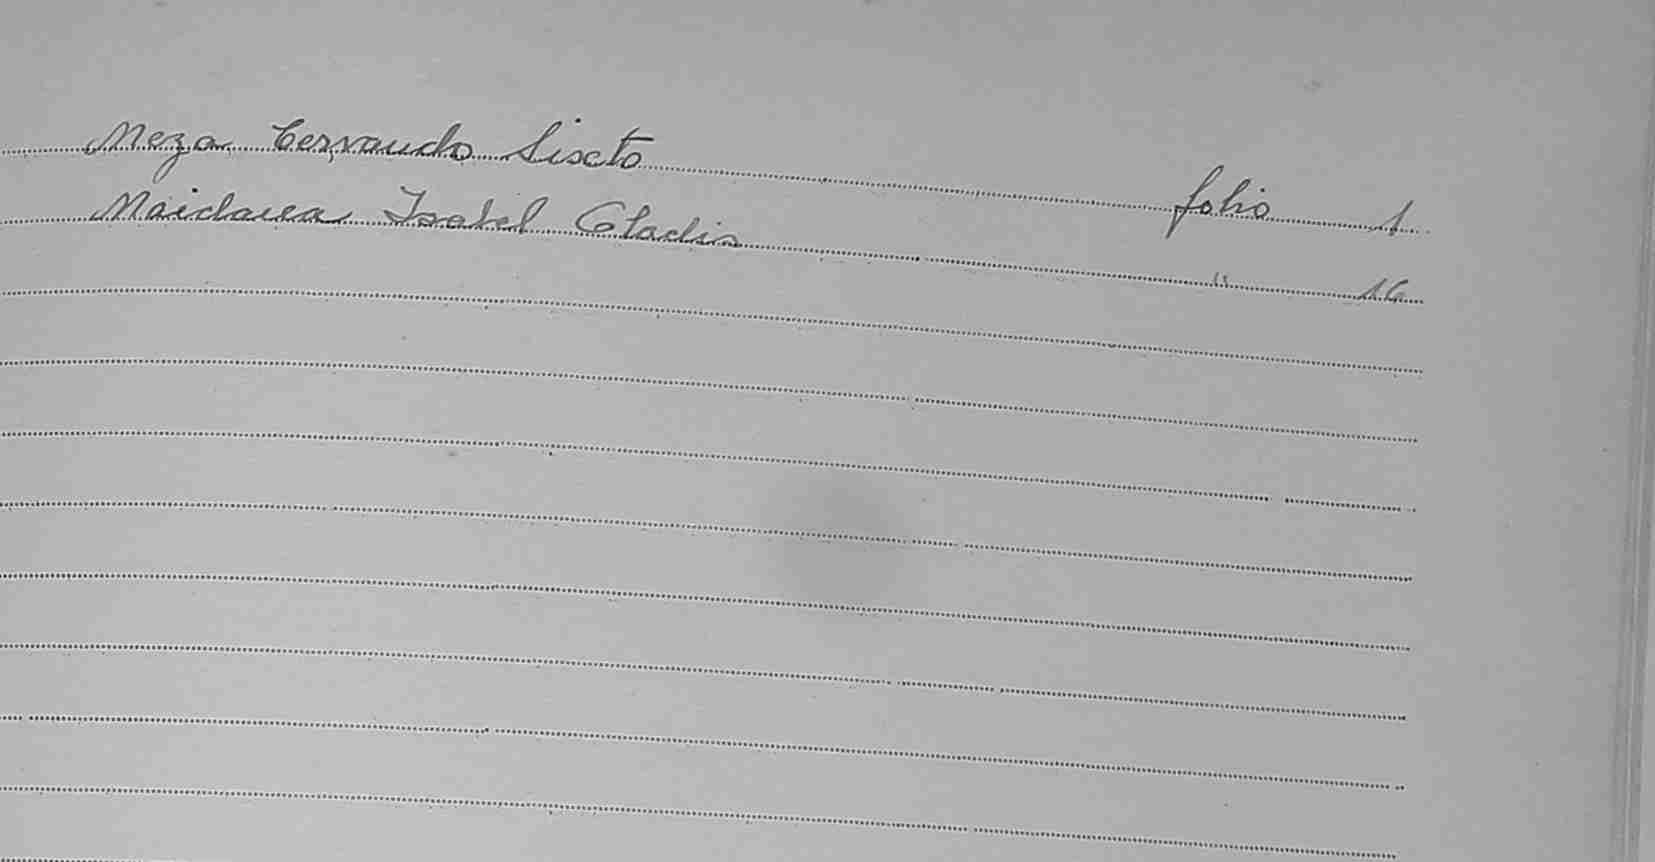 Meza Cervando Sixto folio 1
Maidana Isabel Gladis " 16